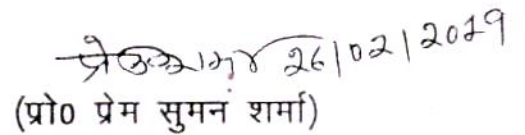 26/02/2019
(प्रो0 प्रेम सुमन शर्मा)